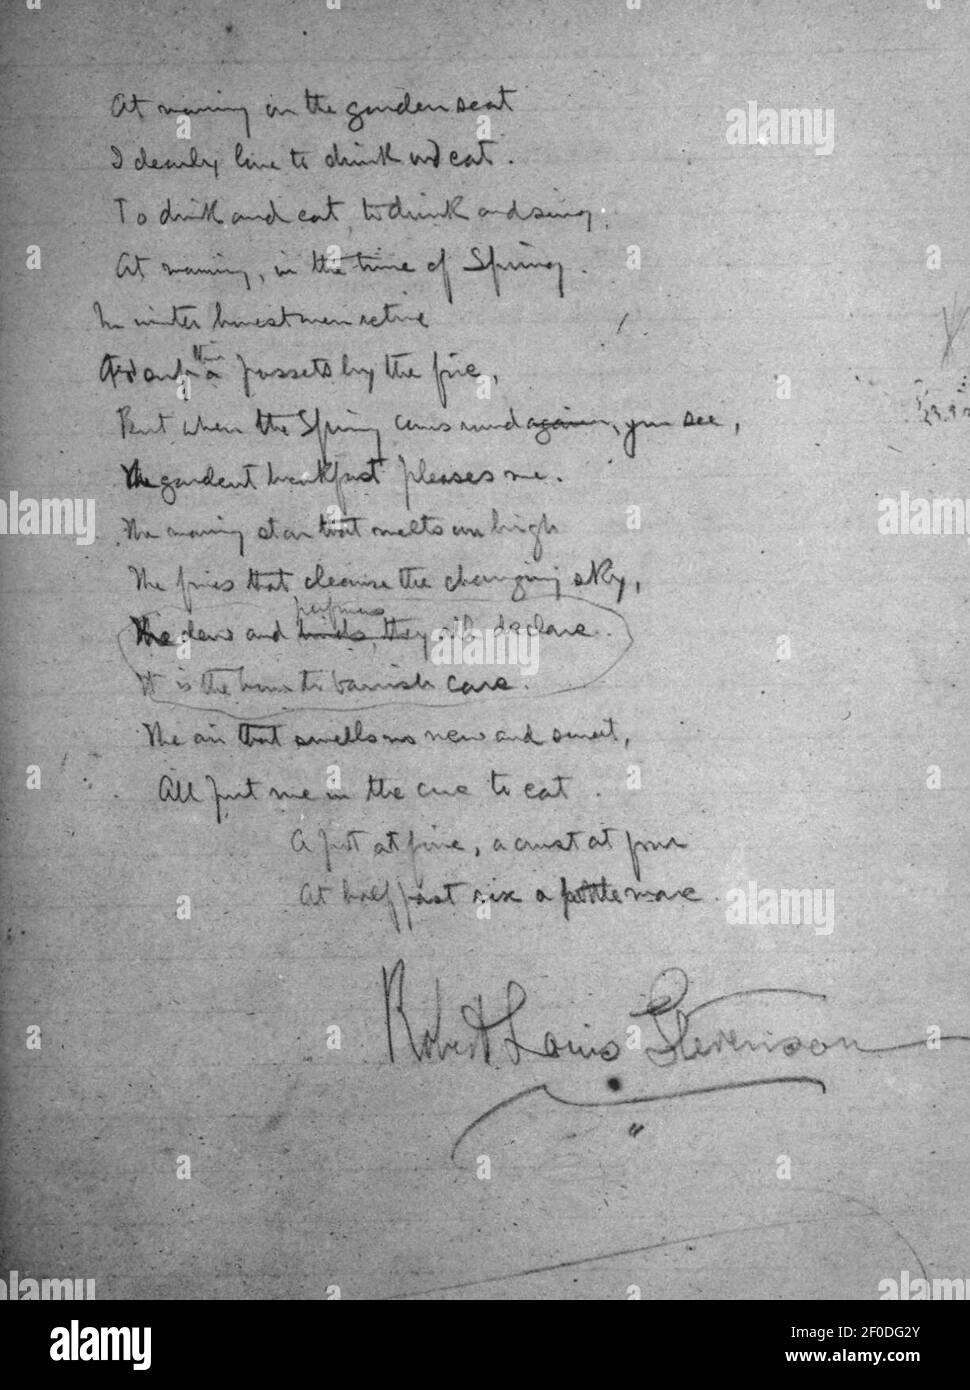 At morning on the garden seat
I dearly love to drink and eat.
To drink and eat, to drink and sing,
At morning, in the time of Spring.
In winter honest men retire
And sup their possets by the fire,
But when the Spring comes round again, you see,
The garden breakfast pleases me.
The morning star that melts on high
The fires that cleanse the changing sky,
perfumes
The dew and birds, they all declare.
It is the hour to banish care.
The air that smells so new and sweet,
All put me in the cue to eat.
A pot at five, a crust at four
At half past six a pottle more.
Robert Louis Stevenson
alamy
Image ID: 2F0DG2Y
www.alamy.com